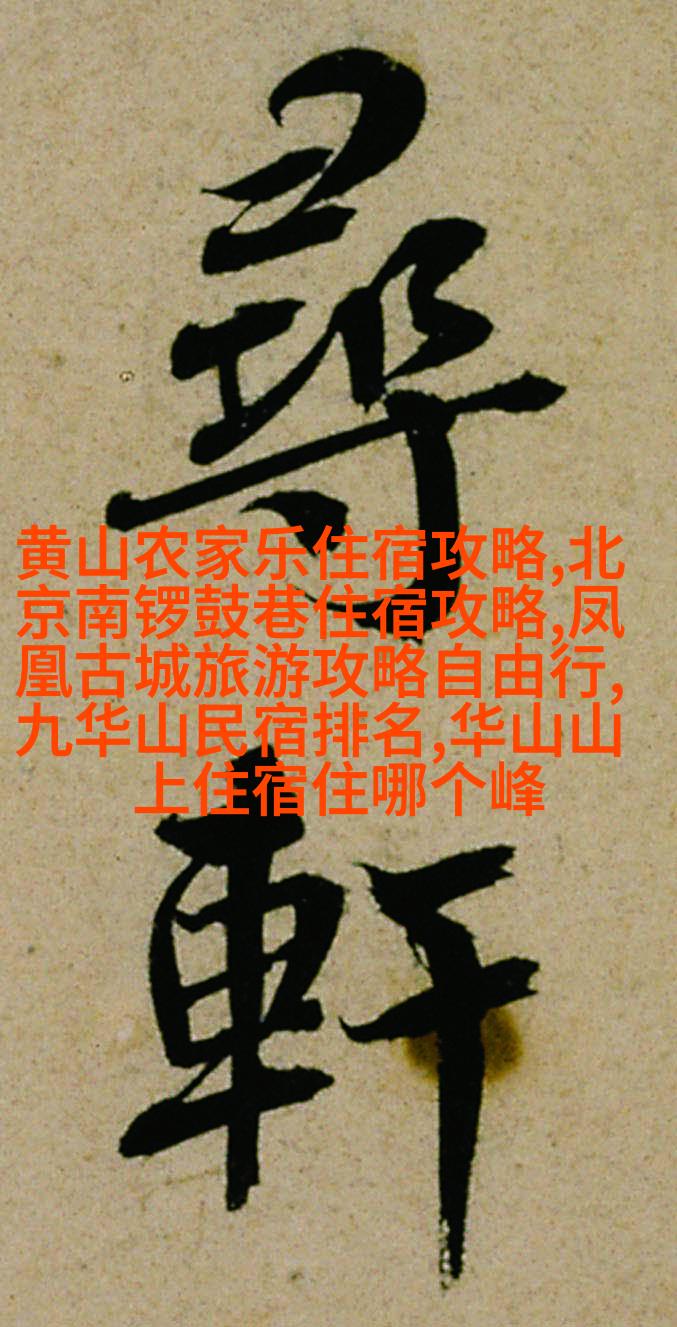 尋
軒
黄山农家乐住宿攻略,北
京南锣鼓巷住宿攻略,凤
凰古城旅游攻略自由行,
九华山民宿排名,华山山
上住宿住哪个峰